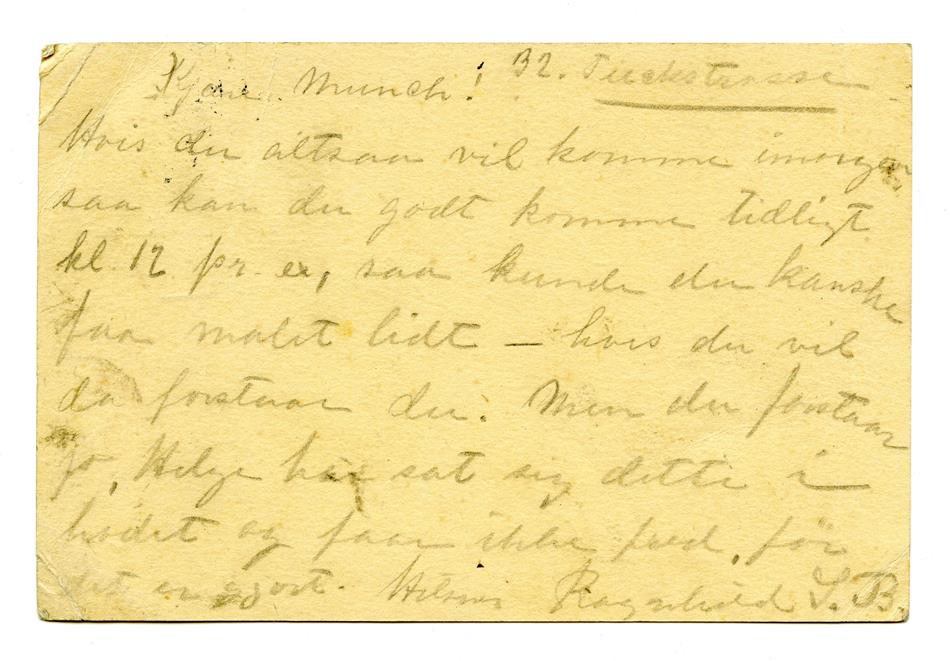 Kjære Munch! 32. Türckstrasse
Hvis du altsaa vil komme imorgen
saa kan du godt komme tidligt
kl. 12 pr. ex, saa kunde du kanske
faa malet lidt – hvis du vil
da forstaar du. Men du forstaar
jo, Helge har sat sig dette i
hodet og faar ikke fred, før
det er gjort. Hilsen Ragnhild S. B.